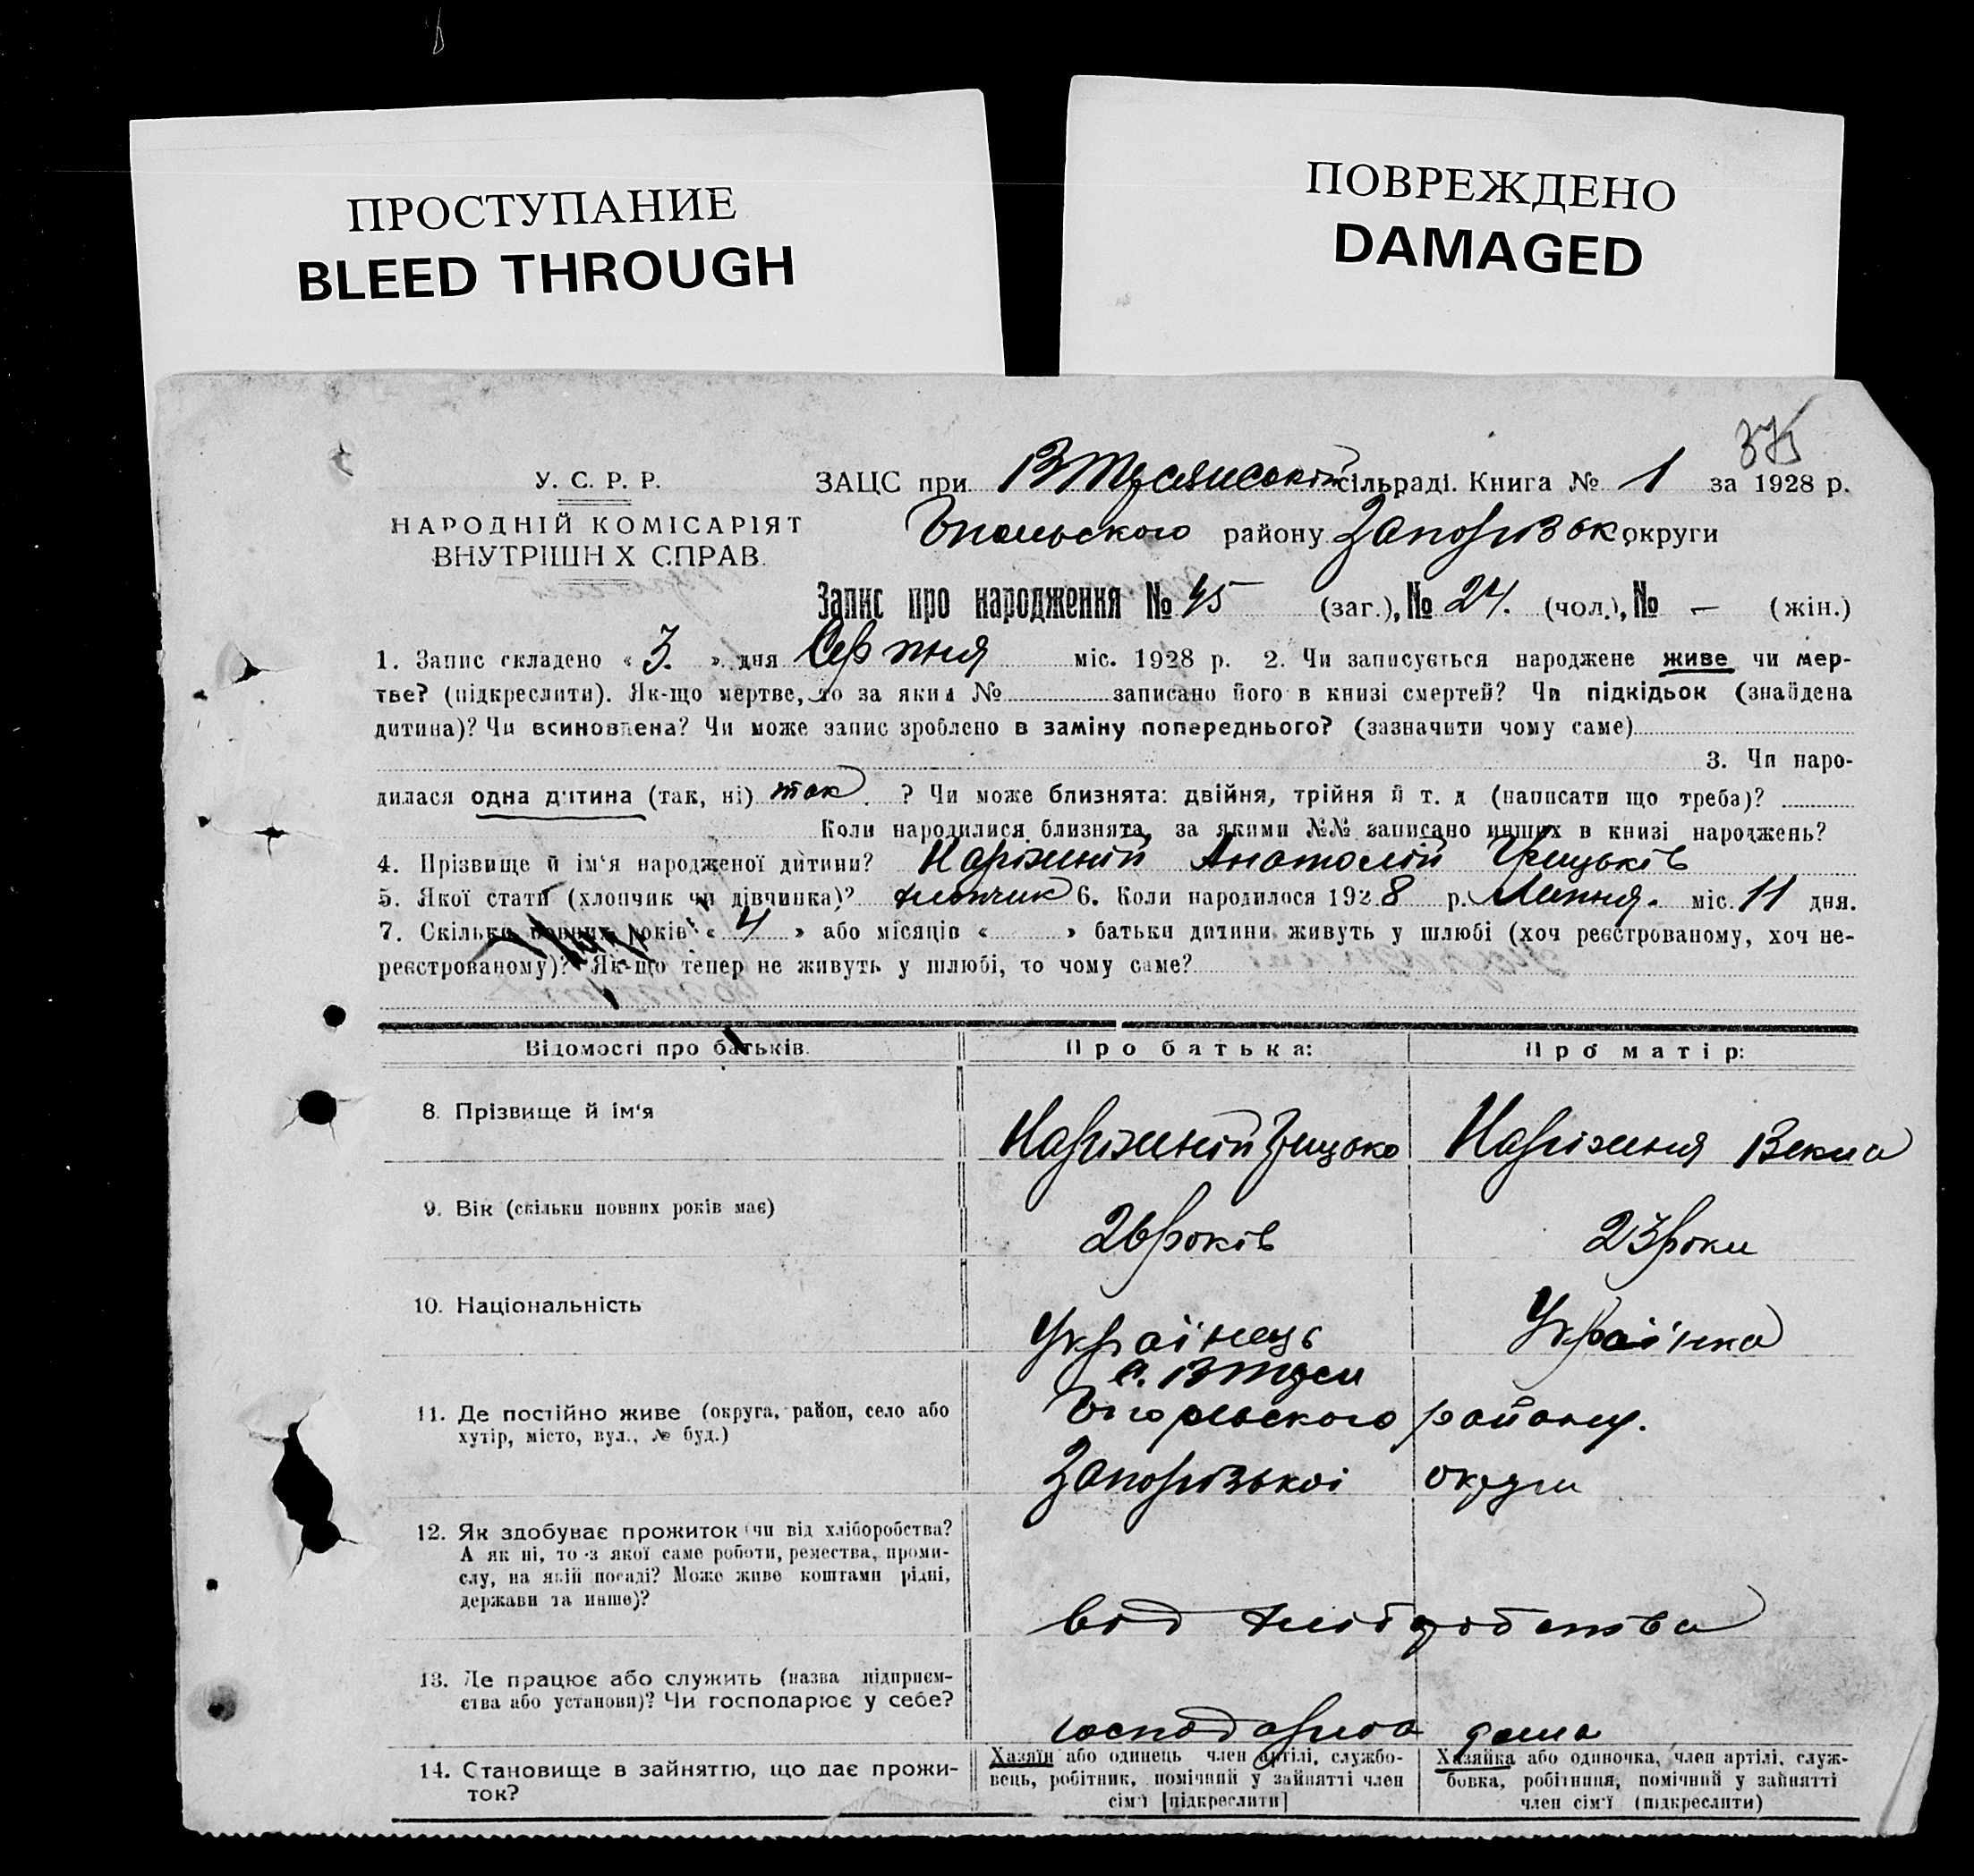 ПРОСТУПАНИЕ
BLEED THROUGH
ПОВРЕЖДЕНО
DAMAGED
375
У. С. Р. Р.
НАРОДНІЙ КОМІСАРІЯТ
ВНУТРІШН Х СПРАВ.
ЗАЦС при сільраді. Книга № 1 за 1928 р.
району Запорізьк округи
Запис про народження № 45 (заг.), № 24. (чол.), № — (жін.)
1. Запис складено « 3. » дня Серпня міс. 1928 р. 2. Чи записується народжене живе чи мер-
тве? (підкреслити). Як-що мертве, то за яким № записано його в книзі смертей? Чи підкідьок (знайдена
дитина)? Чи всиновлена? Чи може запис зроблено в заміну попереднього? (зазначити чому саме)
3. Чи наро-
дилася одна дитина (так, ні) так. ? Чи може близнята: двійня, трійня й т. д (написати що треба)?
Коли народилися близнята, за якими №№ записано инших в книзі народжень?
4. Прізвище й ім'я народженої дитини? Наріжній Анатолій Грицьків
5. Якої статі (хлопчик чи дівчинка)? хлопчик 6. Коли народилося 1928 р. Липня. міс. 11 дня.
7. Скільки повних років « 4 » або місяців « » батьки дитини живуть у шлюбі (хоч реєстрованому, хоч не-
реєстрованому)? Як-що тепер не живуть у шлюбі, то чому саме?
Відомості про батьків. Про батька: Про матір:
8. Прізвище й ім'я Наріжній Грицько Наріжня Векла
9. Вік (скільки повних років має) 26 років 23 роки
10. Національність Українець Українка
11. Де постійно живе (округа, район, село або
хутір, місто, вул., № буд.)
с. району.
Запорізької округи
12. Як здобуває прожиток (чи від хліборобства?
А як ні, то з якої саме роботи, ремества, проми-
слу, на якій посаді? Може живе коштами рідні,
держави та инше)?
від хліборобства
13. Де працює або служить (назва підприєм-
ства або установи)? Чи господарює у себе?
дома
14. Становище в зайняттю, що дає прожи-
ток?
Хазяїн або одинець член артілі, службо-
вець, робітник, помічний у зайнятті член
сім'ї [підкреслити]
Хазяйка або одиночка, член артілі, служ-
бовка, робітниця, помічний у зайнятті
член сім'ї (підкреслити)